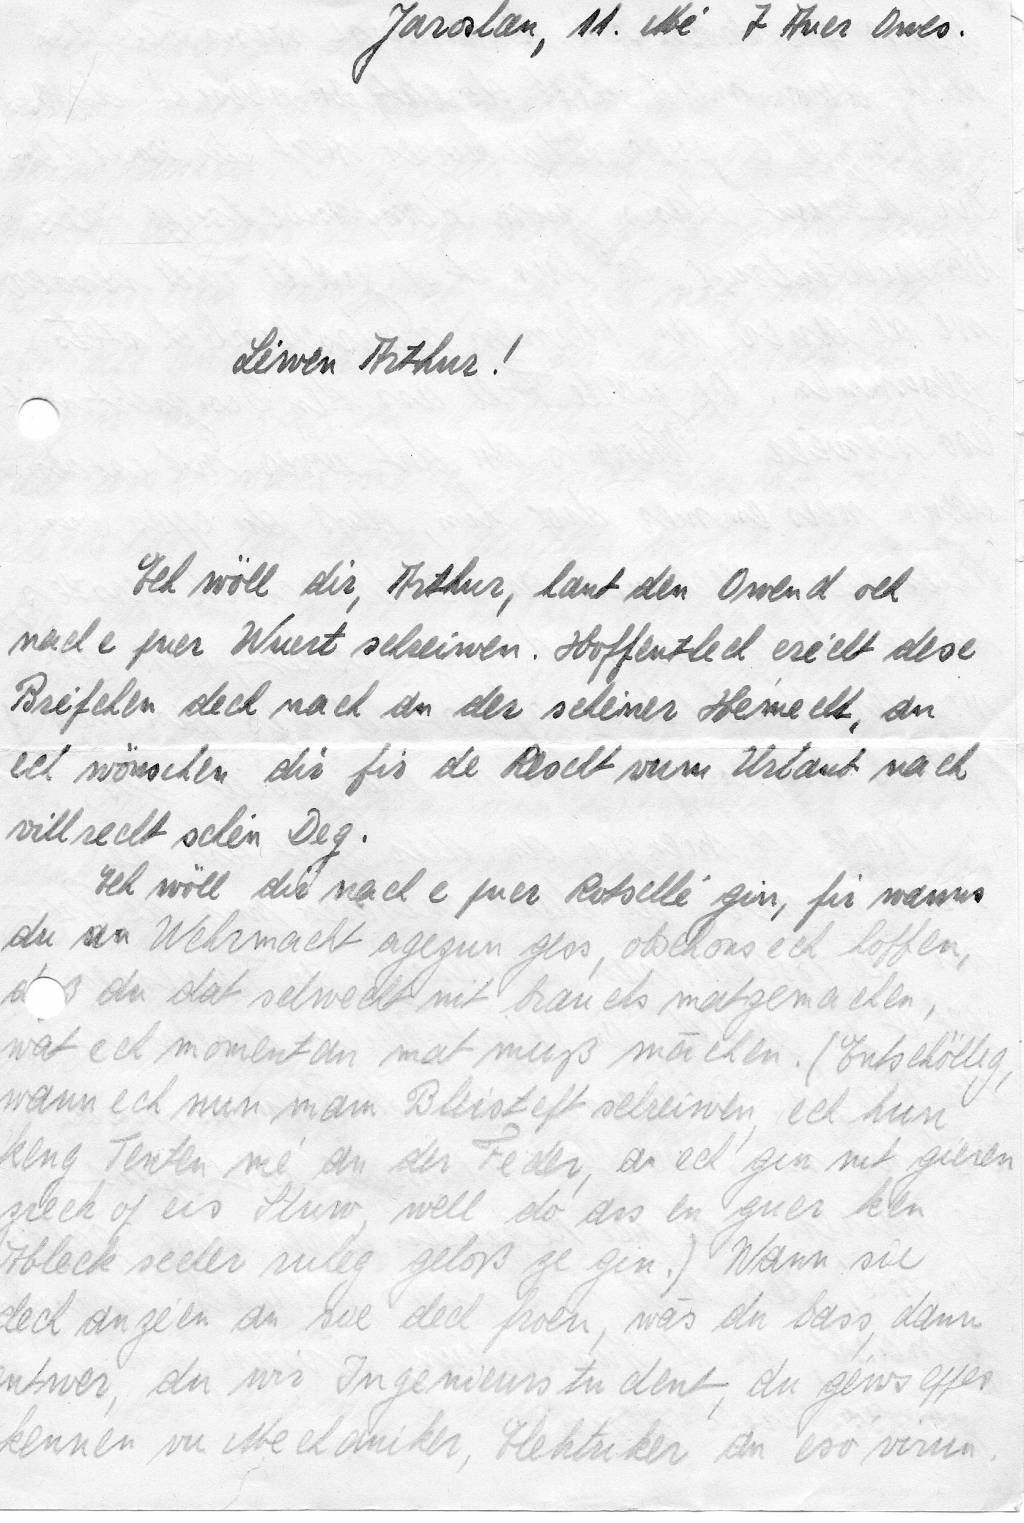 Jaroslau, 11. Mé 7 Auer Owes.
Léwen Arthur!
Ech wöll dir, Arthur, haut den Owend och
nach e puer Wuert schreiwen. Hoffentlech erécht dese
Bréfchen dech nach an der schéiner Hémecht, an
ech wönschen dir fir de Rescht vum Urlaub nach
vill recht schéin Deg.
Ech wöll dir nach e puer Rotschlé gin, fir wanns
du an Wehrmacht agezun gess, obschons ech hoffen,
daß du dat schwecht nit brauchs matzemachen,
wat ech momentan mat muß mächen. (Entschölleg,
wann ech nun mam Bleisteft schreiwen, ech hun
keng Tenten mé an der Féder, an ech gin nit gieren
zreck of eis Stuw, well do as en guer ken
Ableck secher rueg geloß ze gin.) Wann sie
dech anzéen an sie dech froen, wäs du bass, dann
äntwer, du wir Ingenieurstudent, du géiws eppes
kennen vu Mechaniker, Elektriker an esó virun.